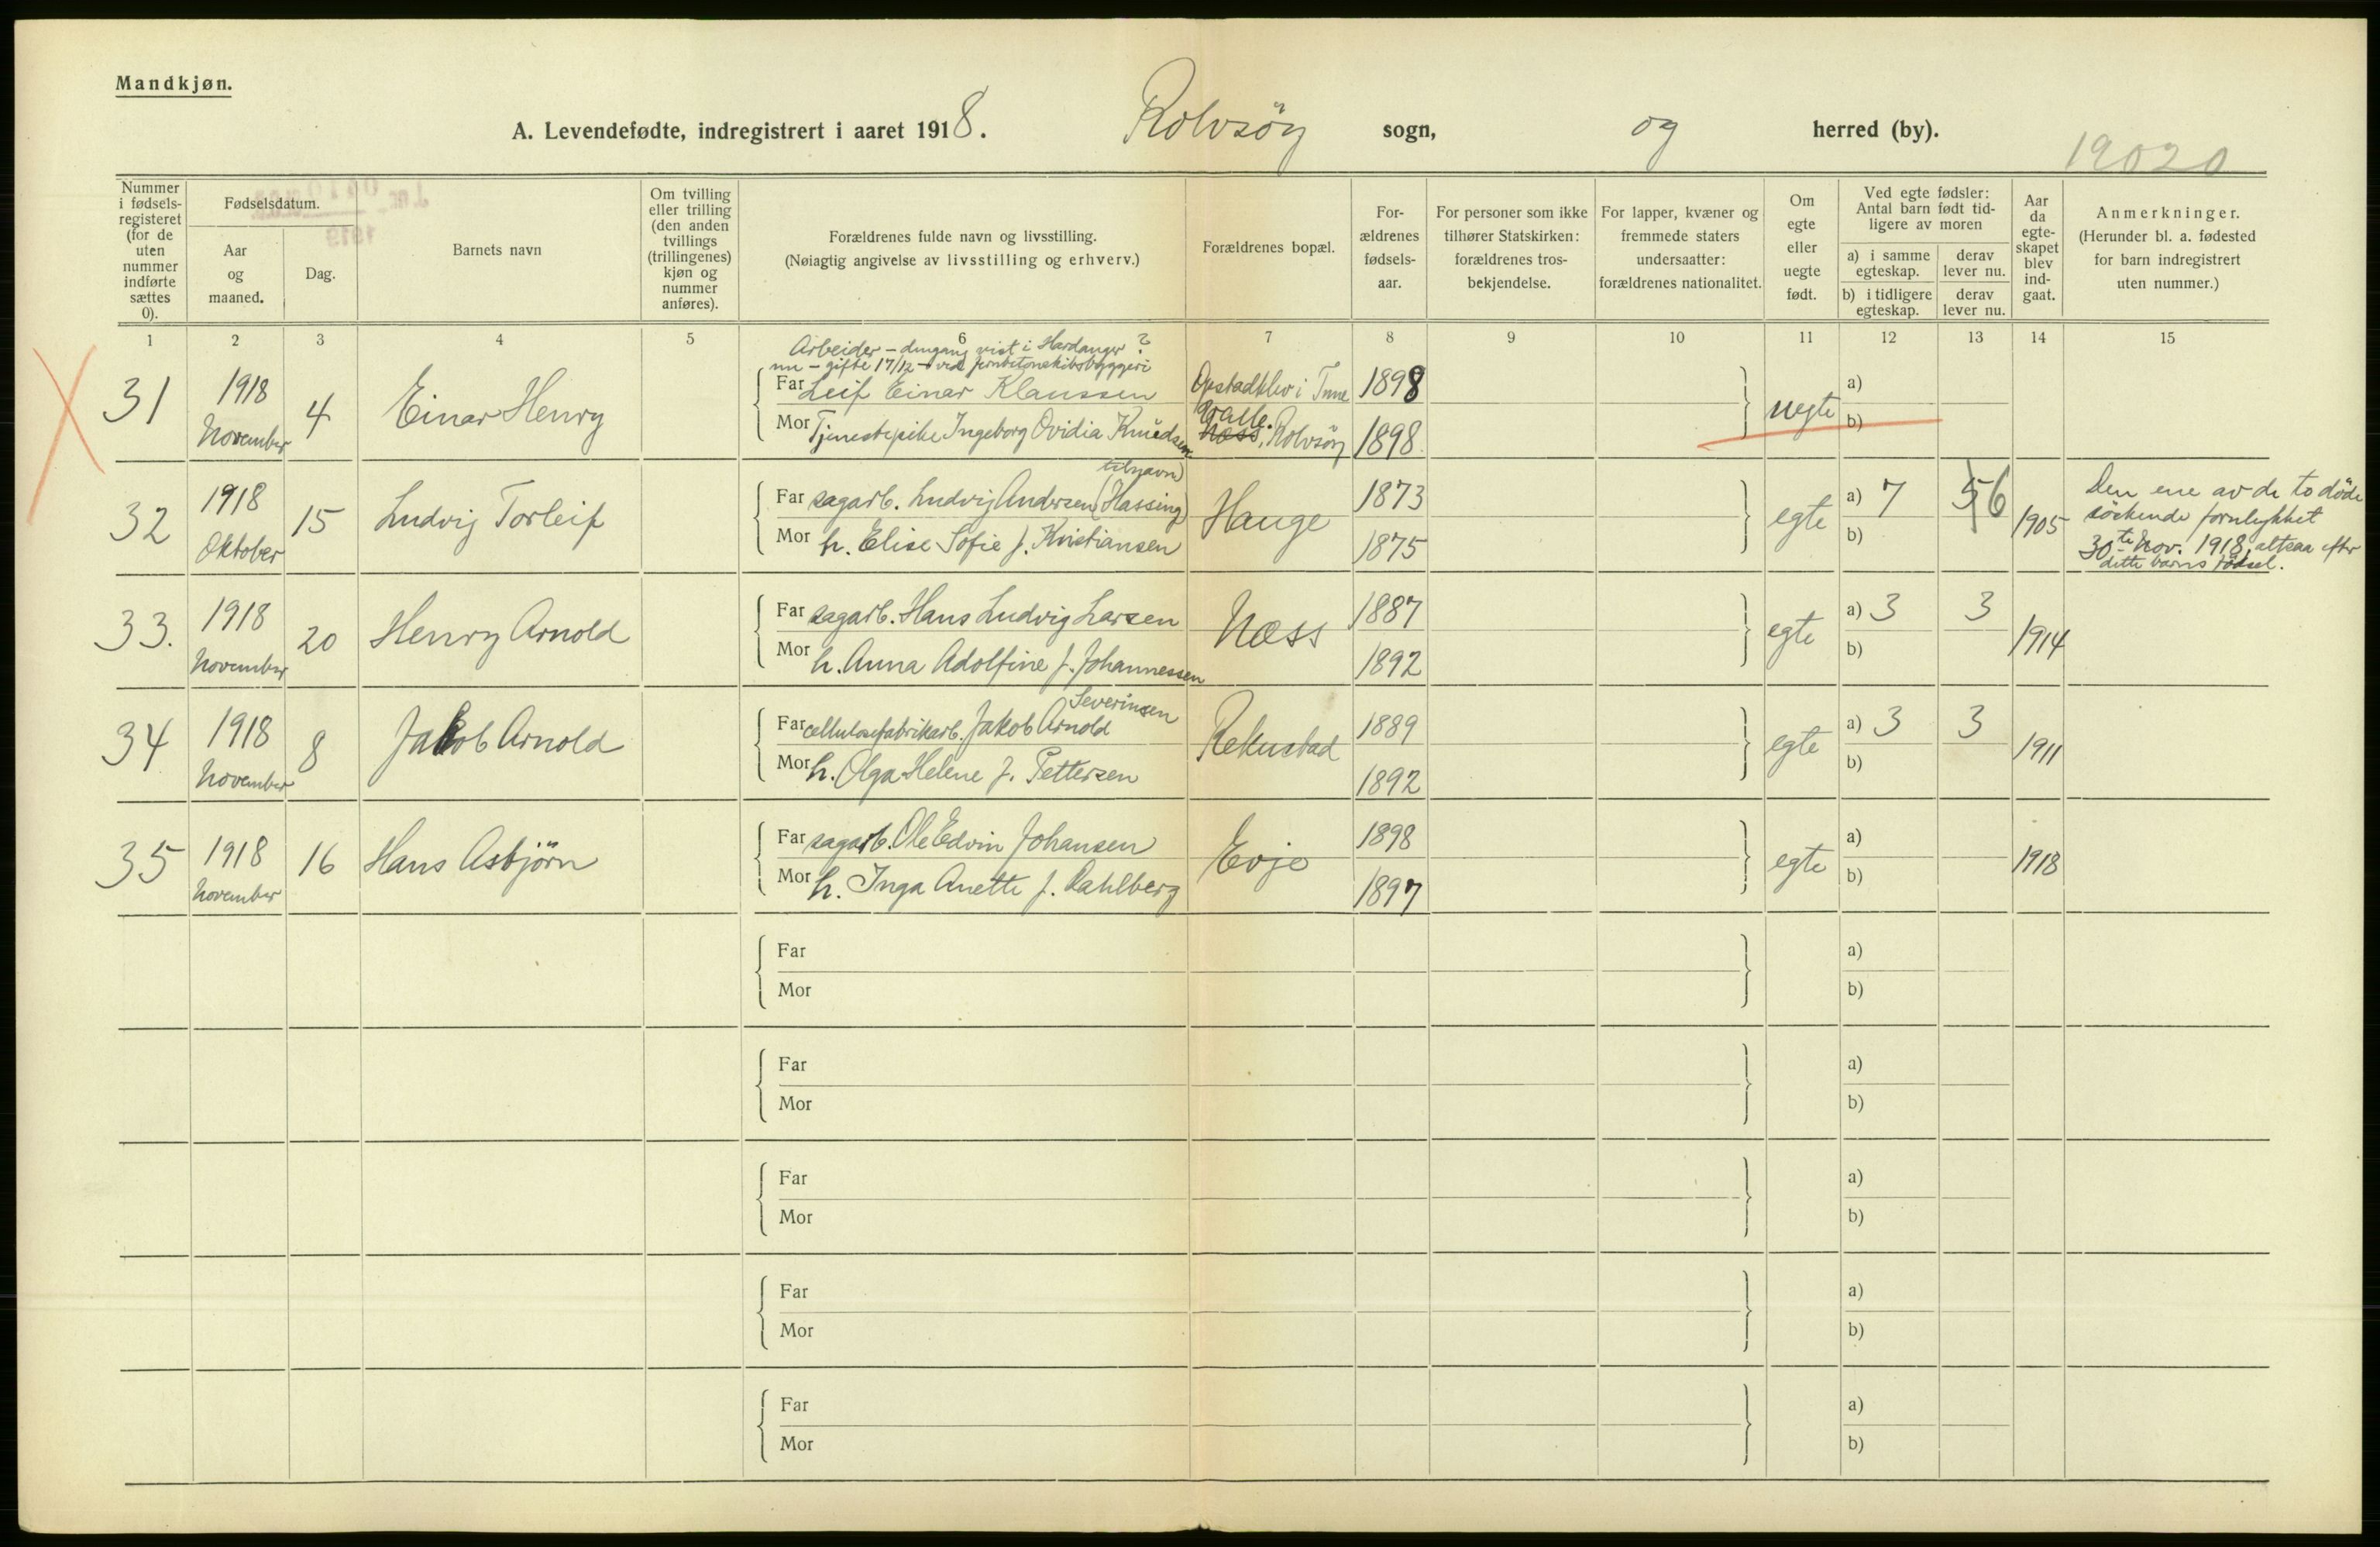 Mandkjøn.
A. Levendefødte, indregistrert i aaret 1918. Rolvsöy sogn, og herred (by).
19020
Nummer i fødsels-registeret (for de uten nummer indførte sættes 0).
Fødselsdatum.
Aar og maaned.
Dag.
Barnets navn
Om tvilling eller trilling (den anden tvillings (trillingenes) kjøn og nummer anføres).
Forældrenes fulde navn og livsstilling.
(Nøiagtig angivelse av livsstilling og erhverv.)
Forældrenes bopæl.
For-ældrenes fødsels-aar.
For personer som ikke tilhører Statskirken: forældrenes tros-bekjendelse.
For lapper, kvæner og fremmede staters undersaatter: forældrenes nationalitet.
Om egte eller uegte født.
Ved egte fødsler: Antal barn født tid-ligere av moren
a) i samme egteskap.
derav lever nu.
b) i tidligere egteskap.
derav lever nu.
Aar da egte-skapet blev ind-gaat.
Anmerkninger.
(Herunder bl. a. fødested for barn indregistrert uten nummer.)
1 2 3 4 5 6 7 8 9 10 11 12 13 14 15
Arbeider - dengang vist i Hardanger ?
nu - gifte 17/12 - ved jernbetonskibsbyggeri
31 1918 November 4 Einar Henry
Far Leif Einar Klaussen i Tune 1898
Mor Tjenestepike Ingeborg Ovidia Knudsen Valle. Næss, Rolvsöy 1898
uegte a)
b)
32 1918 Oktober 15 Ludvig Torleif
(tilnavn)
Far sagarb. Ludvig Andersen (Hassing) Hauge 1873
Mor h. Elise Sofie f. Kristiansen 1875
egte a) 7 5 6 1905
b)
Den ene av de to döde
söskende forulykket
30te Nov. 1918, altsaa efter
dette barns födsel.
33. 1918 November 20 Henry Arnold
Far sagarb. Hans Ludvig Larsen Næss 1887
Mor h. Anna Adolfine f. Johannessen 1892
egte a) 3 3 1914
b)
34 1918 November 8 Jakob Arnold
Severinsen
Far cellulosefabrikarb. Jakob Arnold Rekustad 1889
Mor h. Olga Helene f. Pettersen 1892
egte a) 3 3 1911
b)
35 1918 November 16 Hans Asbjörn
Far sagarb. Ole Edvin Johansen Evje 1898
Mor h. Inga Anette f. Dahlberg 1897
egte a) 1918
b)
Far a)
Mor b)
Far a)
Mor b)
Far a)
Mor b)
Far a)
Mor b)
Far a)
Mor b)